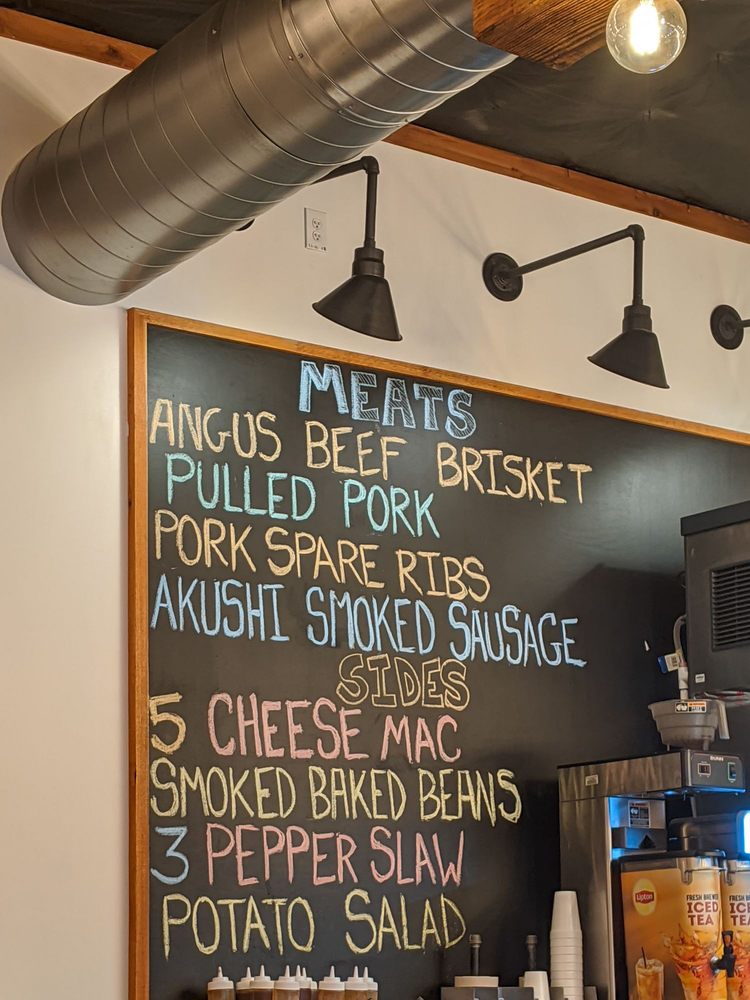 MEATS
ANGUS BEEF BRISKET
PULLED PORK
PORK SPARE RIBS
AKUSHI SMOKED SAUSAGE
SIDES
5 CHEESE MAC
SMOKED BAKED BEANS
3 PEPPER SLAW
POTATO SALAD
BUNN
Lipton
FRESH BREWED
ICED
TEA